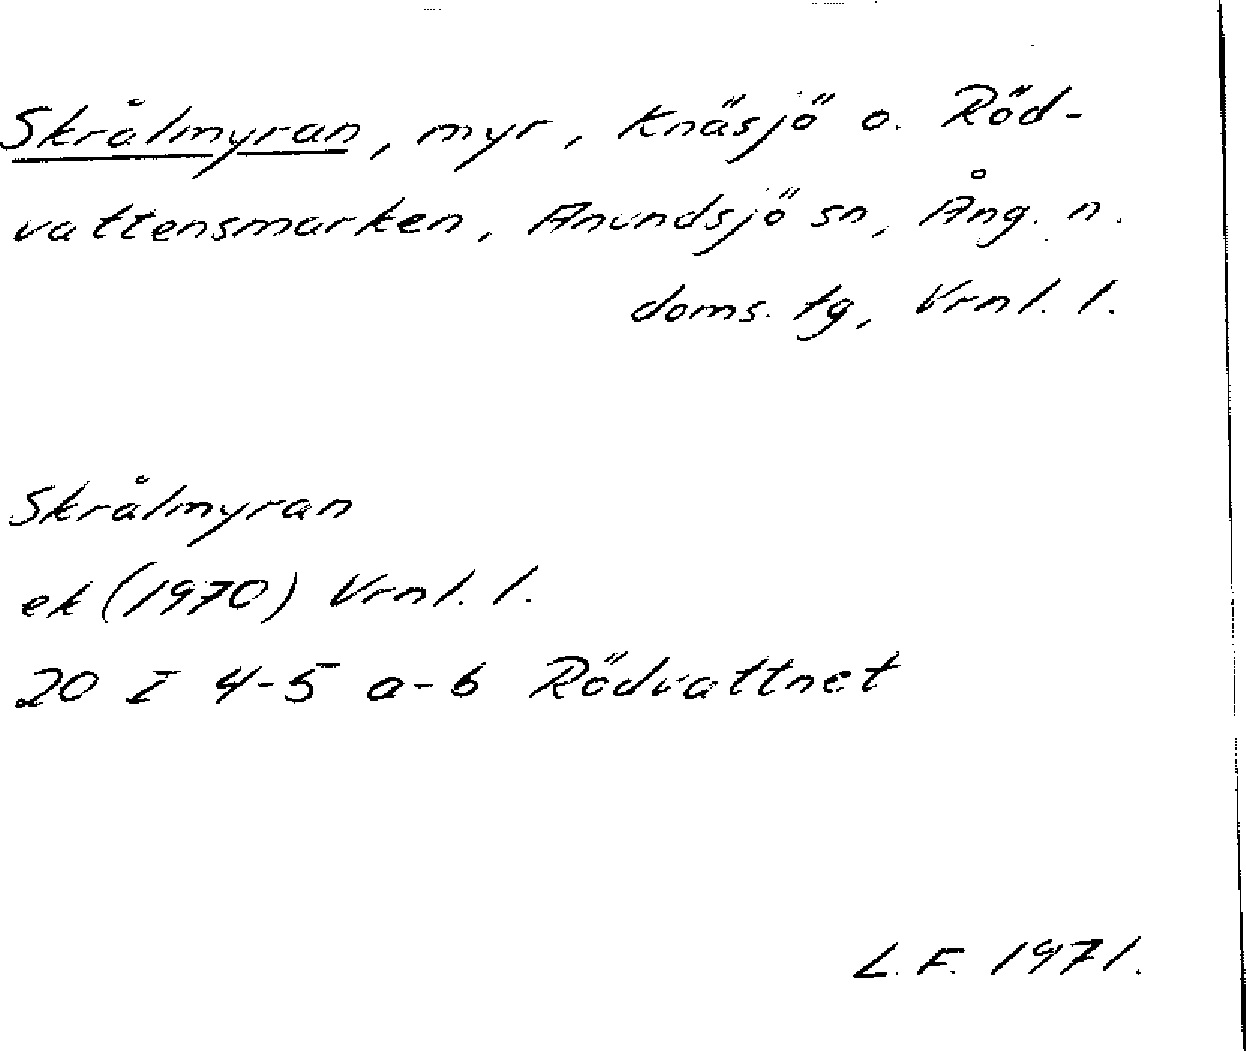 Skrålmyran, myr, Knäsjö o. Röd-
vattensmarken, Anundsjö sn, Ång. n.
doms. tg, Vrnl. l.
Skrålmyran
ek (1970) Vrnl. l.
20 I 4-5 a-b Rödvattnet
L. F. 1971.